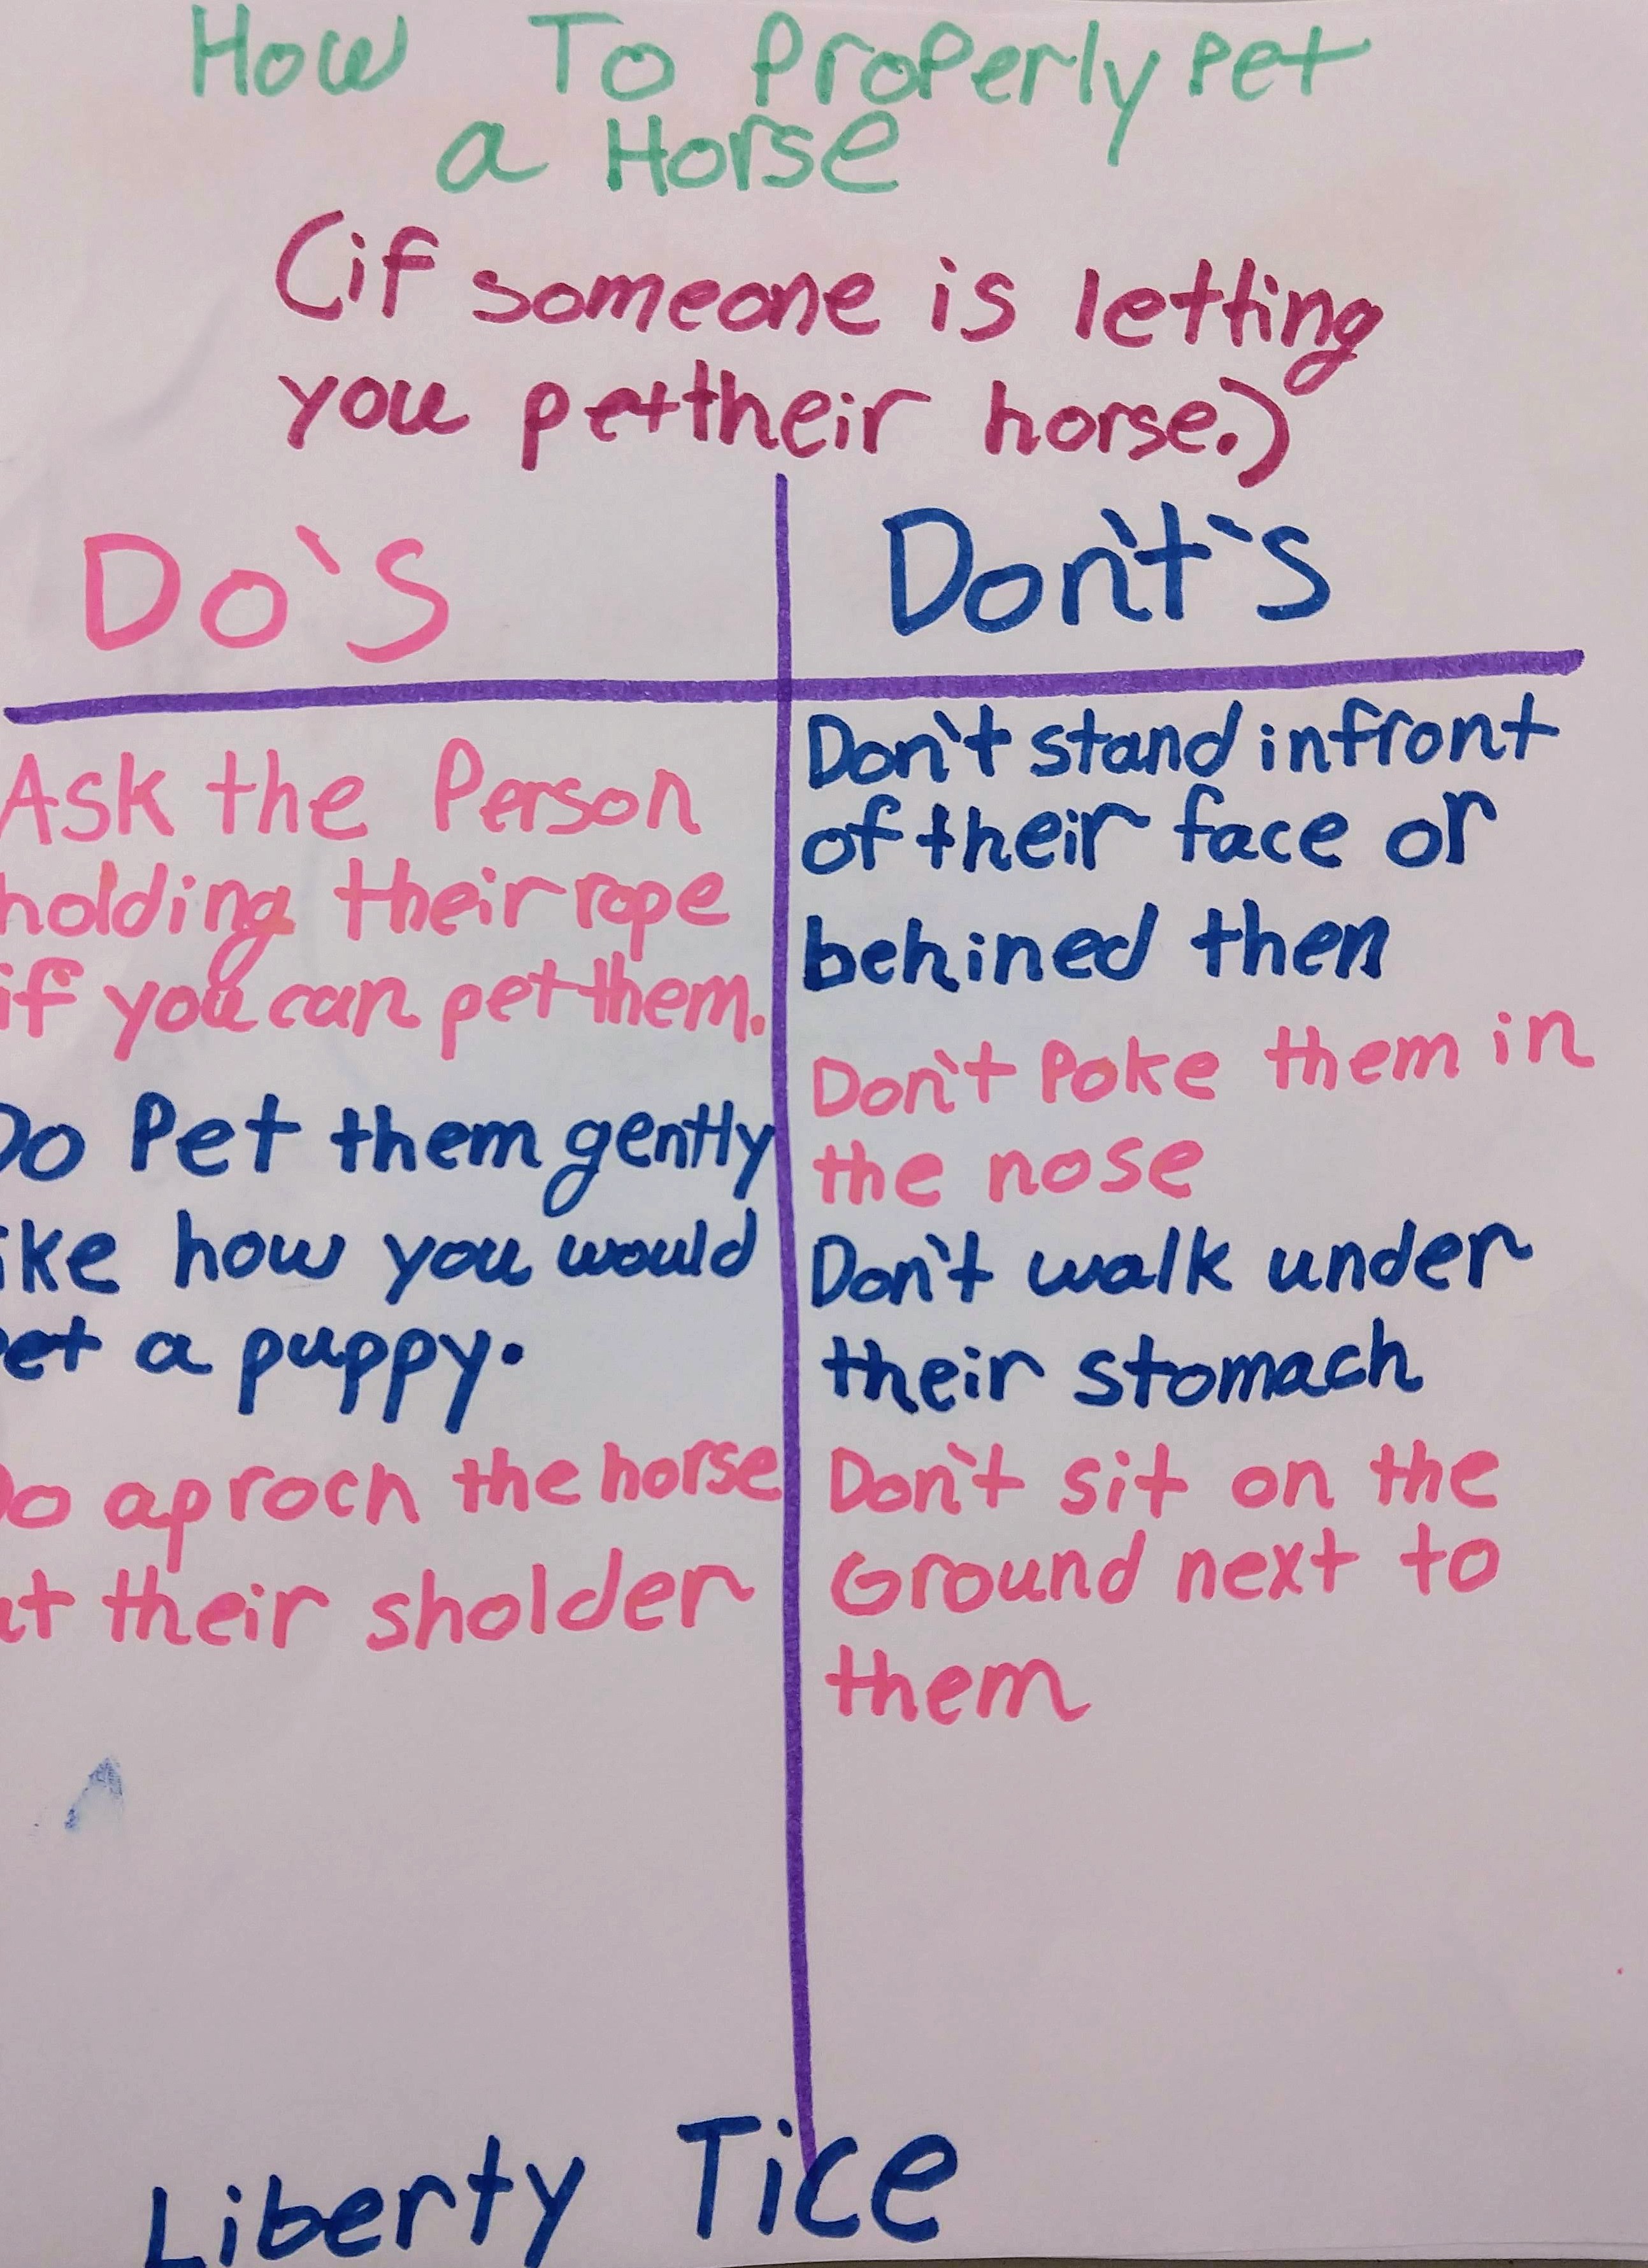 How To Properly pet
a Horse
(if someone is letting
you pet their horse.)
Do's
Don't's
Ask the Person
holding their rope
if you can pet them.
Do Pet them gently
ike how you would
et a puppy.
Do aproch the horse
at their sholder
Don't stand infront
of their face or
behined then
Don't Poke them in
the nose
Don't walk under
their stomach
Don't sit on the
Ground next to
them
Liberty Tice